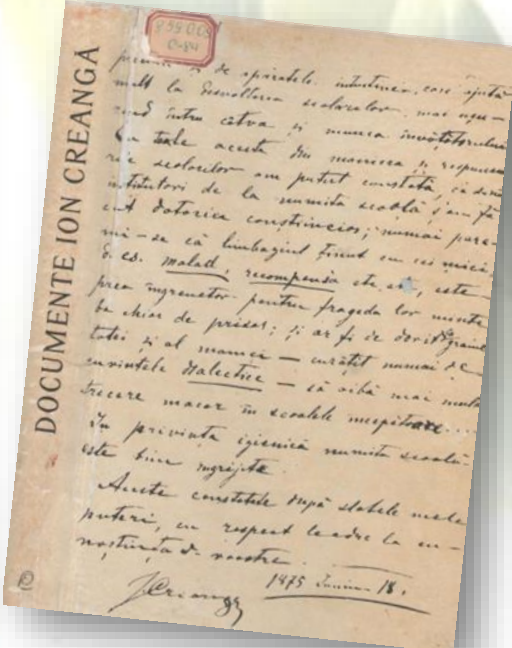 DOCUMENTE ION CREANGA
839.005
C-84
și de aparatele intuitive, care ajută
mult la desvoltarea scolarelor, mai ușu-
rând întru câtva și munca învățătorului
Cu toate aceste din maniera și respunsu-
rile scolarilor am putut constată, că domnii
institutori de la numita scoală și-au fă-
cut datoria conștiincios; numai pare-
mi-se că limbagiul ținut cu cei mici,
d. es. malad, recompensă etc. etc, este
prea îngreuetor pentru frageda lor minte
ba chiar de prisos; și ar fi de dorit ca graiul
tatei și al mamei — curățit numai de
cuvintele dialectice — să aibă mai multă
trecere macar în scoalele începătoare....
În privința igienică numita scoală
este bine îngrijită.
Aceste constatate după slabele mele
puteri, cu respect le aduc la cu-
noștința d-voastre.
1875 Iuniu 18.
ICreangă